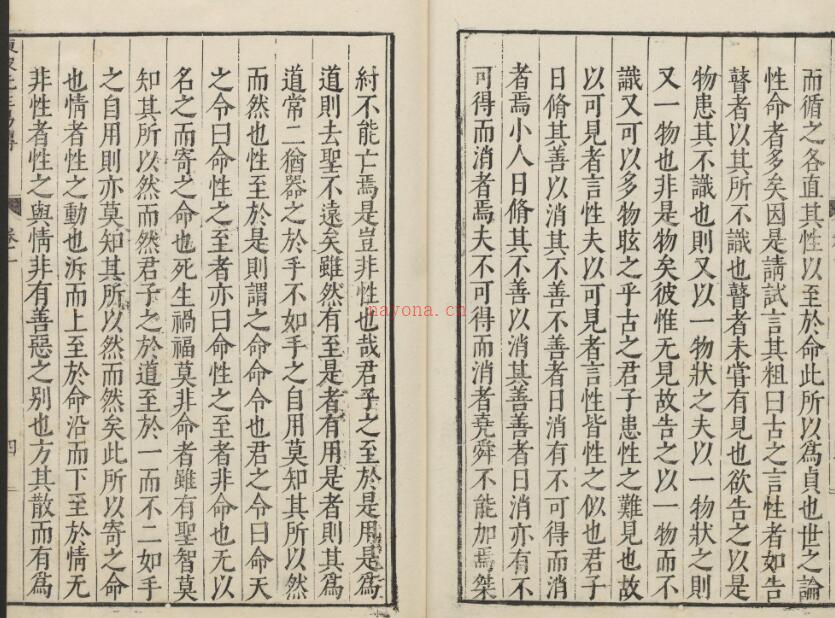 而循之各直其性以至於命此所以爲貞也世之論
性命者多矣因是請試言其粗曰古之言性者如告
瞽者以其所不識也瞽者未嘗有見也欲告之以是
物患其不識也則又以一物狀之夫以一物狀之則
又一物也非是物矣彼惟无見故告之以一物而不
識又可以多物眩之乎古之君子患性之難見也故
以可見者言性夫以可見者言性皆性之似也君子
日脩其善以消其不善不善者日消有不可得而消
者焉小人日脩其不善以消其善善者日消亦有不
可得而消者焉夫不可得而消者堯舜不能加焉桀
紂不能亡焉是豈非性也哉君子之至於是用是爲
道則去聖不遠矣雖然有至是者有用是者則其爲
道常二猶器之於手不如手之自用莫知其所以然
而然也性至於是則謂之命命令也君之令曰命天
之令曰命性之至者亦曰命性之至者非命也无以
名之而寄之命也死生禍福莫非命者雖有聖智莫
知其所以然而然君子之於道至於一而不二如手
之自用則亦莫知其所以然而然矣此所以寄之命
也情者性之動也泝而上至於命沿而下至於情无
非性者性之與情非有善惡之别也方其散而有爲
卷一
四
nayona.cn